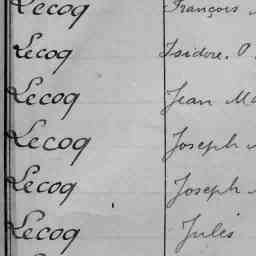 Lecoq François
Lecoq Isidore. O.
Lecoq Jean Ma
Lecoq Joseph
Lecoq Joseph
Lecoq Jules